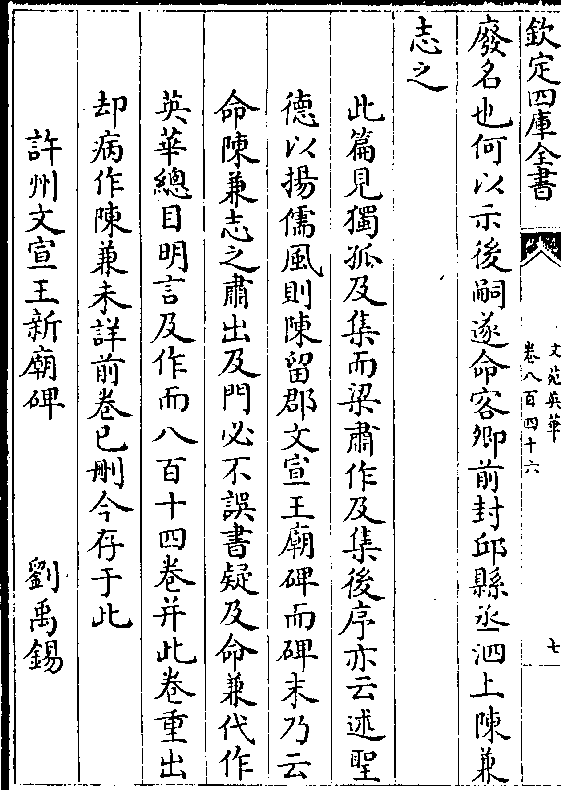 欽定四庫全書
文苑英華
卷八百四十六
七
廢名也何以示後嗣遂命客卿前封邱縣丞泗上陳兼
志之
此篇見獨孤及集而梁肅作及集後序亦云述聖
德以揚儒風則陳留郡文宣王廟碑而碑末乃云
命陳兼志之肅出及門必不誤書疑及命兼代作
英華總目明言及作而八百十四卷并此卷重出
却病作陳兼未詳前卷已刪今存于此
許州文宣王新廟碑 劉禹錫